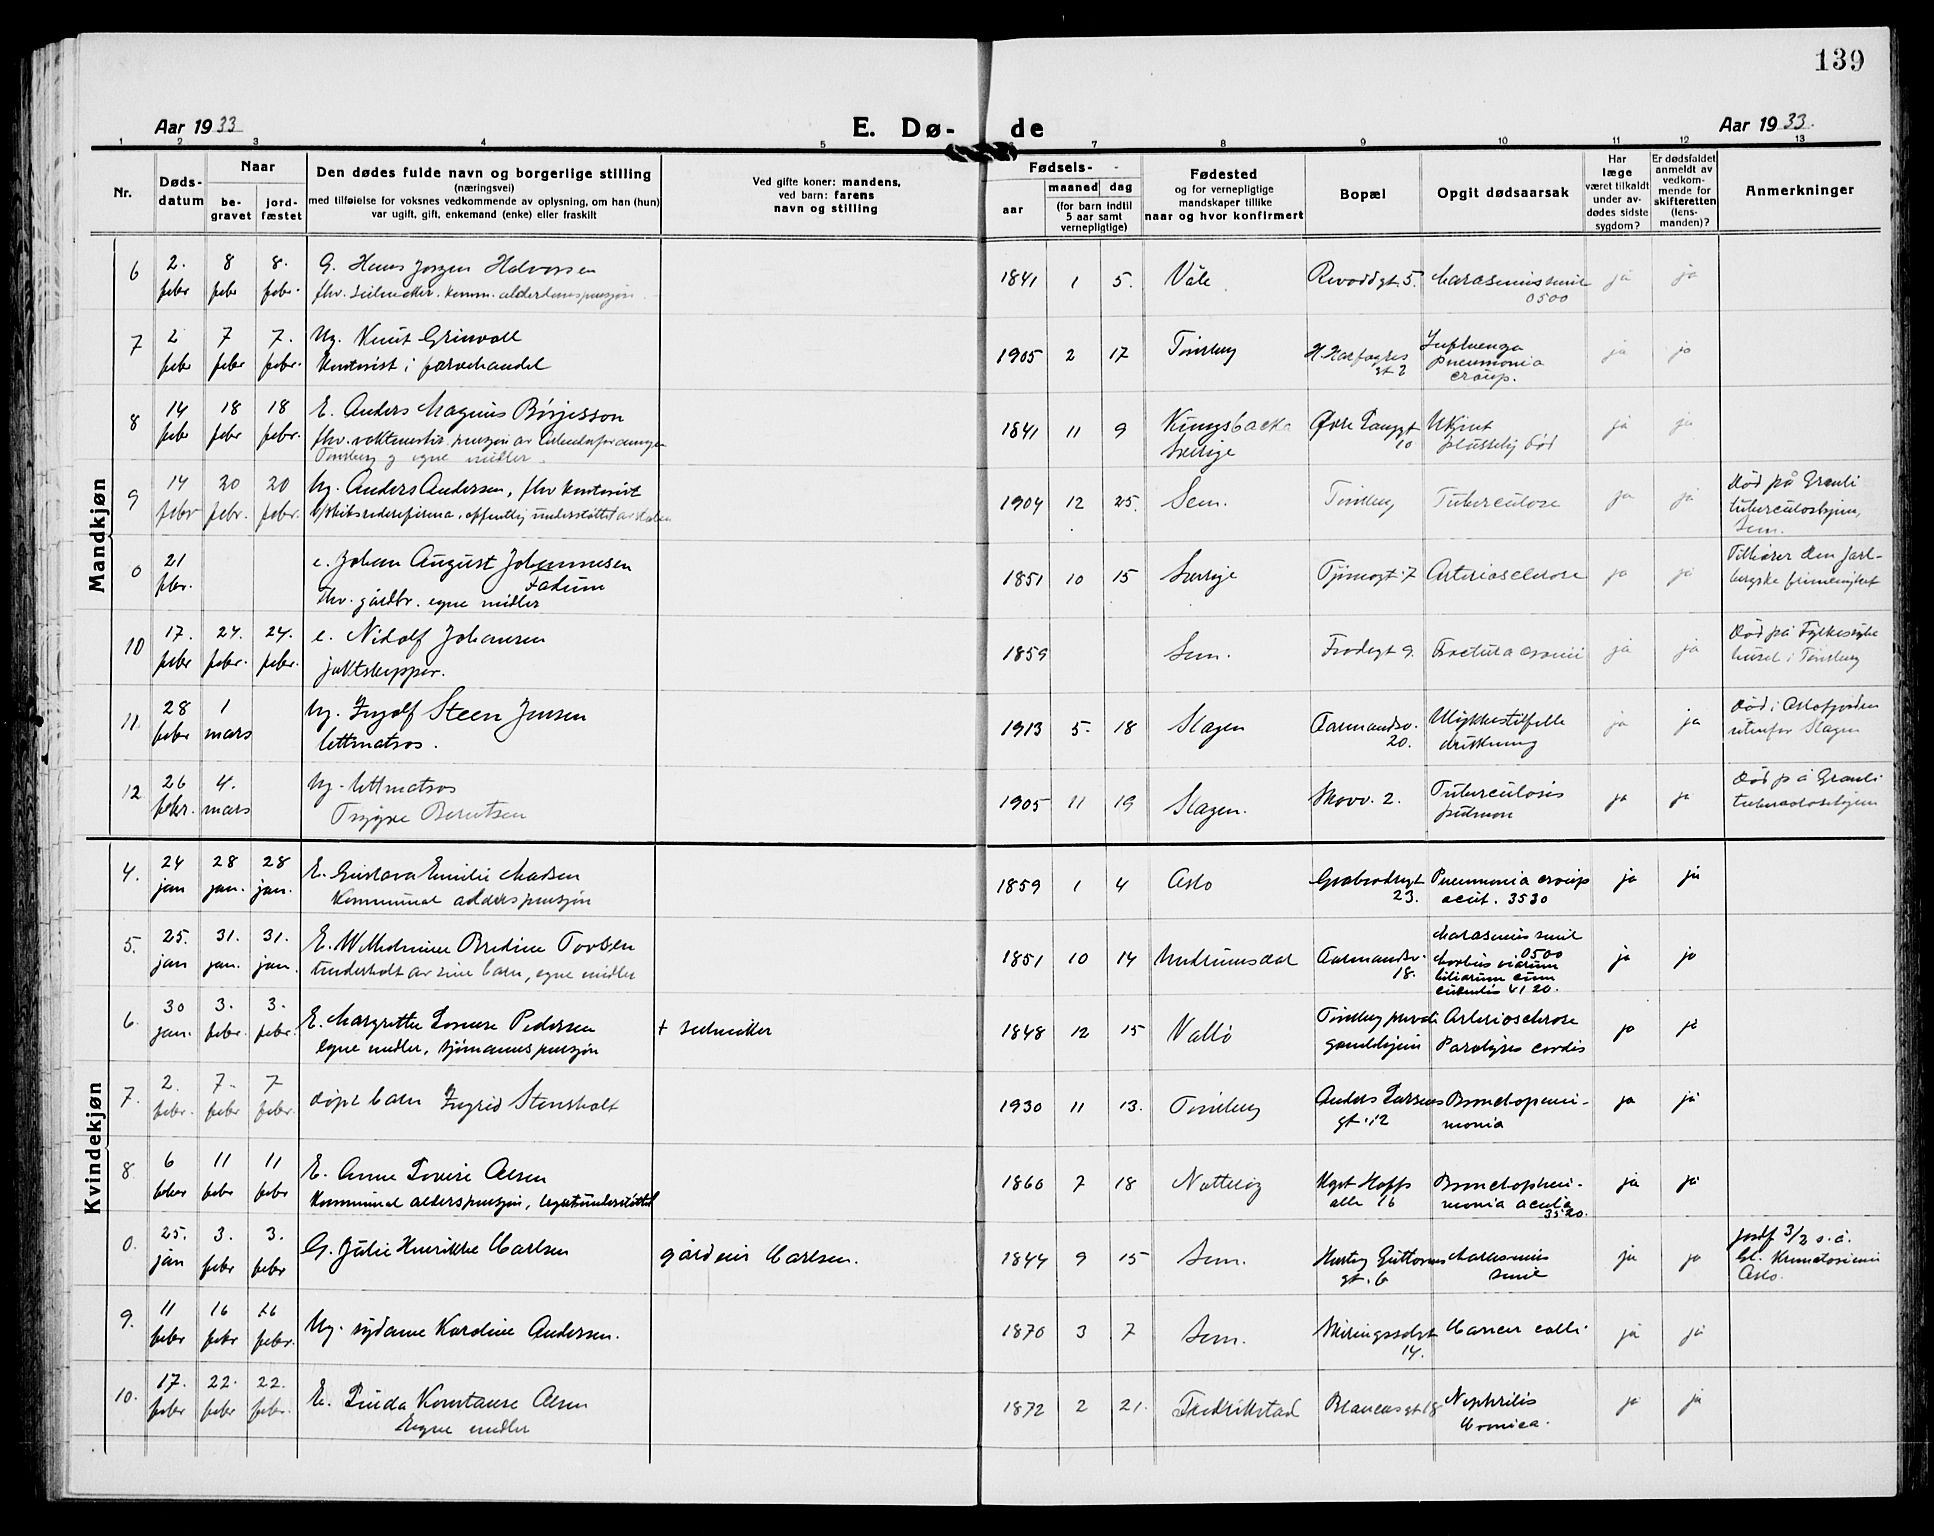 139
Aar 1933
E. Dø-
de
Aar 1933.
1 2 3 4 5 6 7 8 9 10 11 12 13
Nr.
Døds-
datum
Naar
be-
gravet
jord-
fæstet
Den dødes fulde navn og borgerlige stilling
(næringsvei)
med tilføielse for voksnes vedkommende av oplysning, om han (hun)
var ugift, gift, enkemand (enke) eller fraskilt
Ved gifte koner: mandens,
ved barn: farens
navn og stilling
Fødsels-
aar
maaned dag
(for barn indtil
5 aar samt
vernepligtige)
Fødested
og for vernepligtige
mandskaper tillike
naar og hvor konfirmert
Bopæl
Opgit dødsaarsak
Har
læge
været tilkaldt
under av-
dødes sidste
sygdom?
Er dødsfaldet
anmeldt av
vedkom-
mende for
skifteretten
(lens-
manden)?
Anmerkninger
Mandkjøn
6 2. febr 8 febr 8. febr. G. Hans Jørgen Halvorsen 1841 1 5. Våle Revoddgt. 5. Marasmus senil 0500 ja ja
fhv. seilmaker. komm. alderdomspensjon.
7 2 febr 7 febr 7. febr. Ug. Knut Grinvoll 1905 2 17 Tønsberg H. Harfagres gt 2 Influenza pneumonia croup. ja ja
Kontorist i farvehandel
8 14 febr 18 febr 18 febr. E. Anders Magnus Börjesson 1841 11 9 Kungsbacka Sverige Øvre Langgt 10 Ukjent plusselig død ja ja
fhv. vaktmester pensjon av
Tønsberg og egne midler.
9 14 febr 20 febr. 20 febr. Ug. Anders Andersen, fhv kontorist 1904 12 25. Sem. Tønsberg Tuberculose ja ja Død på Grønli tuberculosehjem, Sem.
i skibsrederfirma, offentlig understøttet av staten
0 21 febr. e. Johan August Johannesen 1851 10 15 Sverige Tjømegt. 7 Arteriosclerose ja ja Tilhører den Jarlbergske frimenighet
Fadum
fhv. gårdbr. egne midler
10 17. febr 24. febr. 24. febr. e. Nidolf Johansen 1859 Sem. Frodegt 9. Fractura cranii ja ja Død på Fylkessykehuset i Tønsberg
jaktskipper.
11 28 febr 1 mars Ug. Ingolf Steen Jensen 1913 5. 18 Slagen Farmandsv. 20. Ulykkestilfelle drukning ja ja Død i Oslofjorden utenfor Slagen
lettmatros.
12 26 febr. 4. mars Ug. lettmatros 1905 11 19 Slagen. Skovv. 2. Tuberculosis pulmon ja ja Død på Grønli tuberculosehjem
Trygve Berntsen
Kvindekjøn
4. 24 jan 28 jan. 28 jan. E. Gustava Emilie Madsen 1859 1 4 Oslo Grabrødregt 23. Pneumonia croup acut. 3530 ja ja
Kommunal alderspensjon
5. 25. jan 31. jan. 31. jan. E. Wilhelmine Bredine Tovsen 1851 10 14 Undrumsdal Farmandsv. 18. Marasmus senil 0500 Morbus viarum biliarum cum 4120. ja ja
Underholdt av sine barn, egne midler
6. 30 jan. 3. febr. 3. febr. E. Margrethe Lovise Pedersen + seilmaker 1848 12 15 Vallø Tønsberg private gamlehjem Arteriosclerose Paralyses cordis ja ja
Egne midler, sjømannspensjon
7. 2. febr. 7- febr. 7- febr. døpt barn Ingrid Stensholt 1930 11 13. Tønsberg Anders Larsens gt. 12 Bronchopneumonia ja ja
8 6 febr 11 febr 11 febr E. Anna Lovise Olsen 1860 7 18 Nøtterøy Kapt Hoffs alle 16 Bronchopneumonia acuta 3520. ja ja
Kommunal alderspensjon, legatunderstøttet
0. 25. jan 3. febr 3. febr G. Julie Henrikke Carlsen gårdeier Carlsen. 1844 9 15 Sem. Hertug Guttorms gt. 6 Marasmus senil ja ja jordf 3/2 s.å. Gl. Krematorium Oslo.
9. 11 febr 16 febr 16 febr. Ug. sydame Karoline Andersen. 1870 3 7 Sem. 14. Cancer colli ja ja
10. 17. febr 22. febr 22. febr. E. Linda Konstanse Olsen 1872 2 21. Fredrikstad gt 18 Nephritis cronica. ja ja
Egne midler